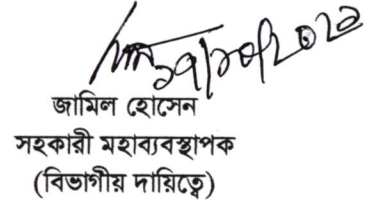 ১৭/১০/২০২১
জামিল হোসেন
সহকারী মহাব্যবস্থাপক
(বিভাগীয় দায়িত্বে)